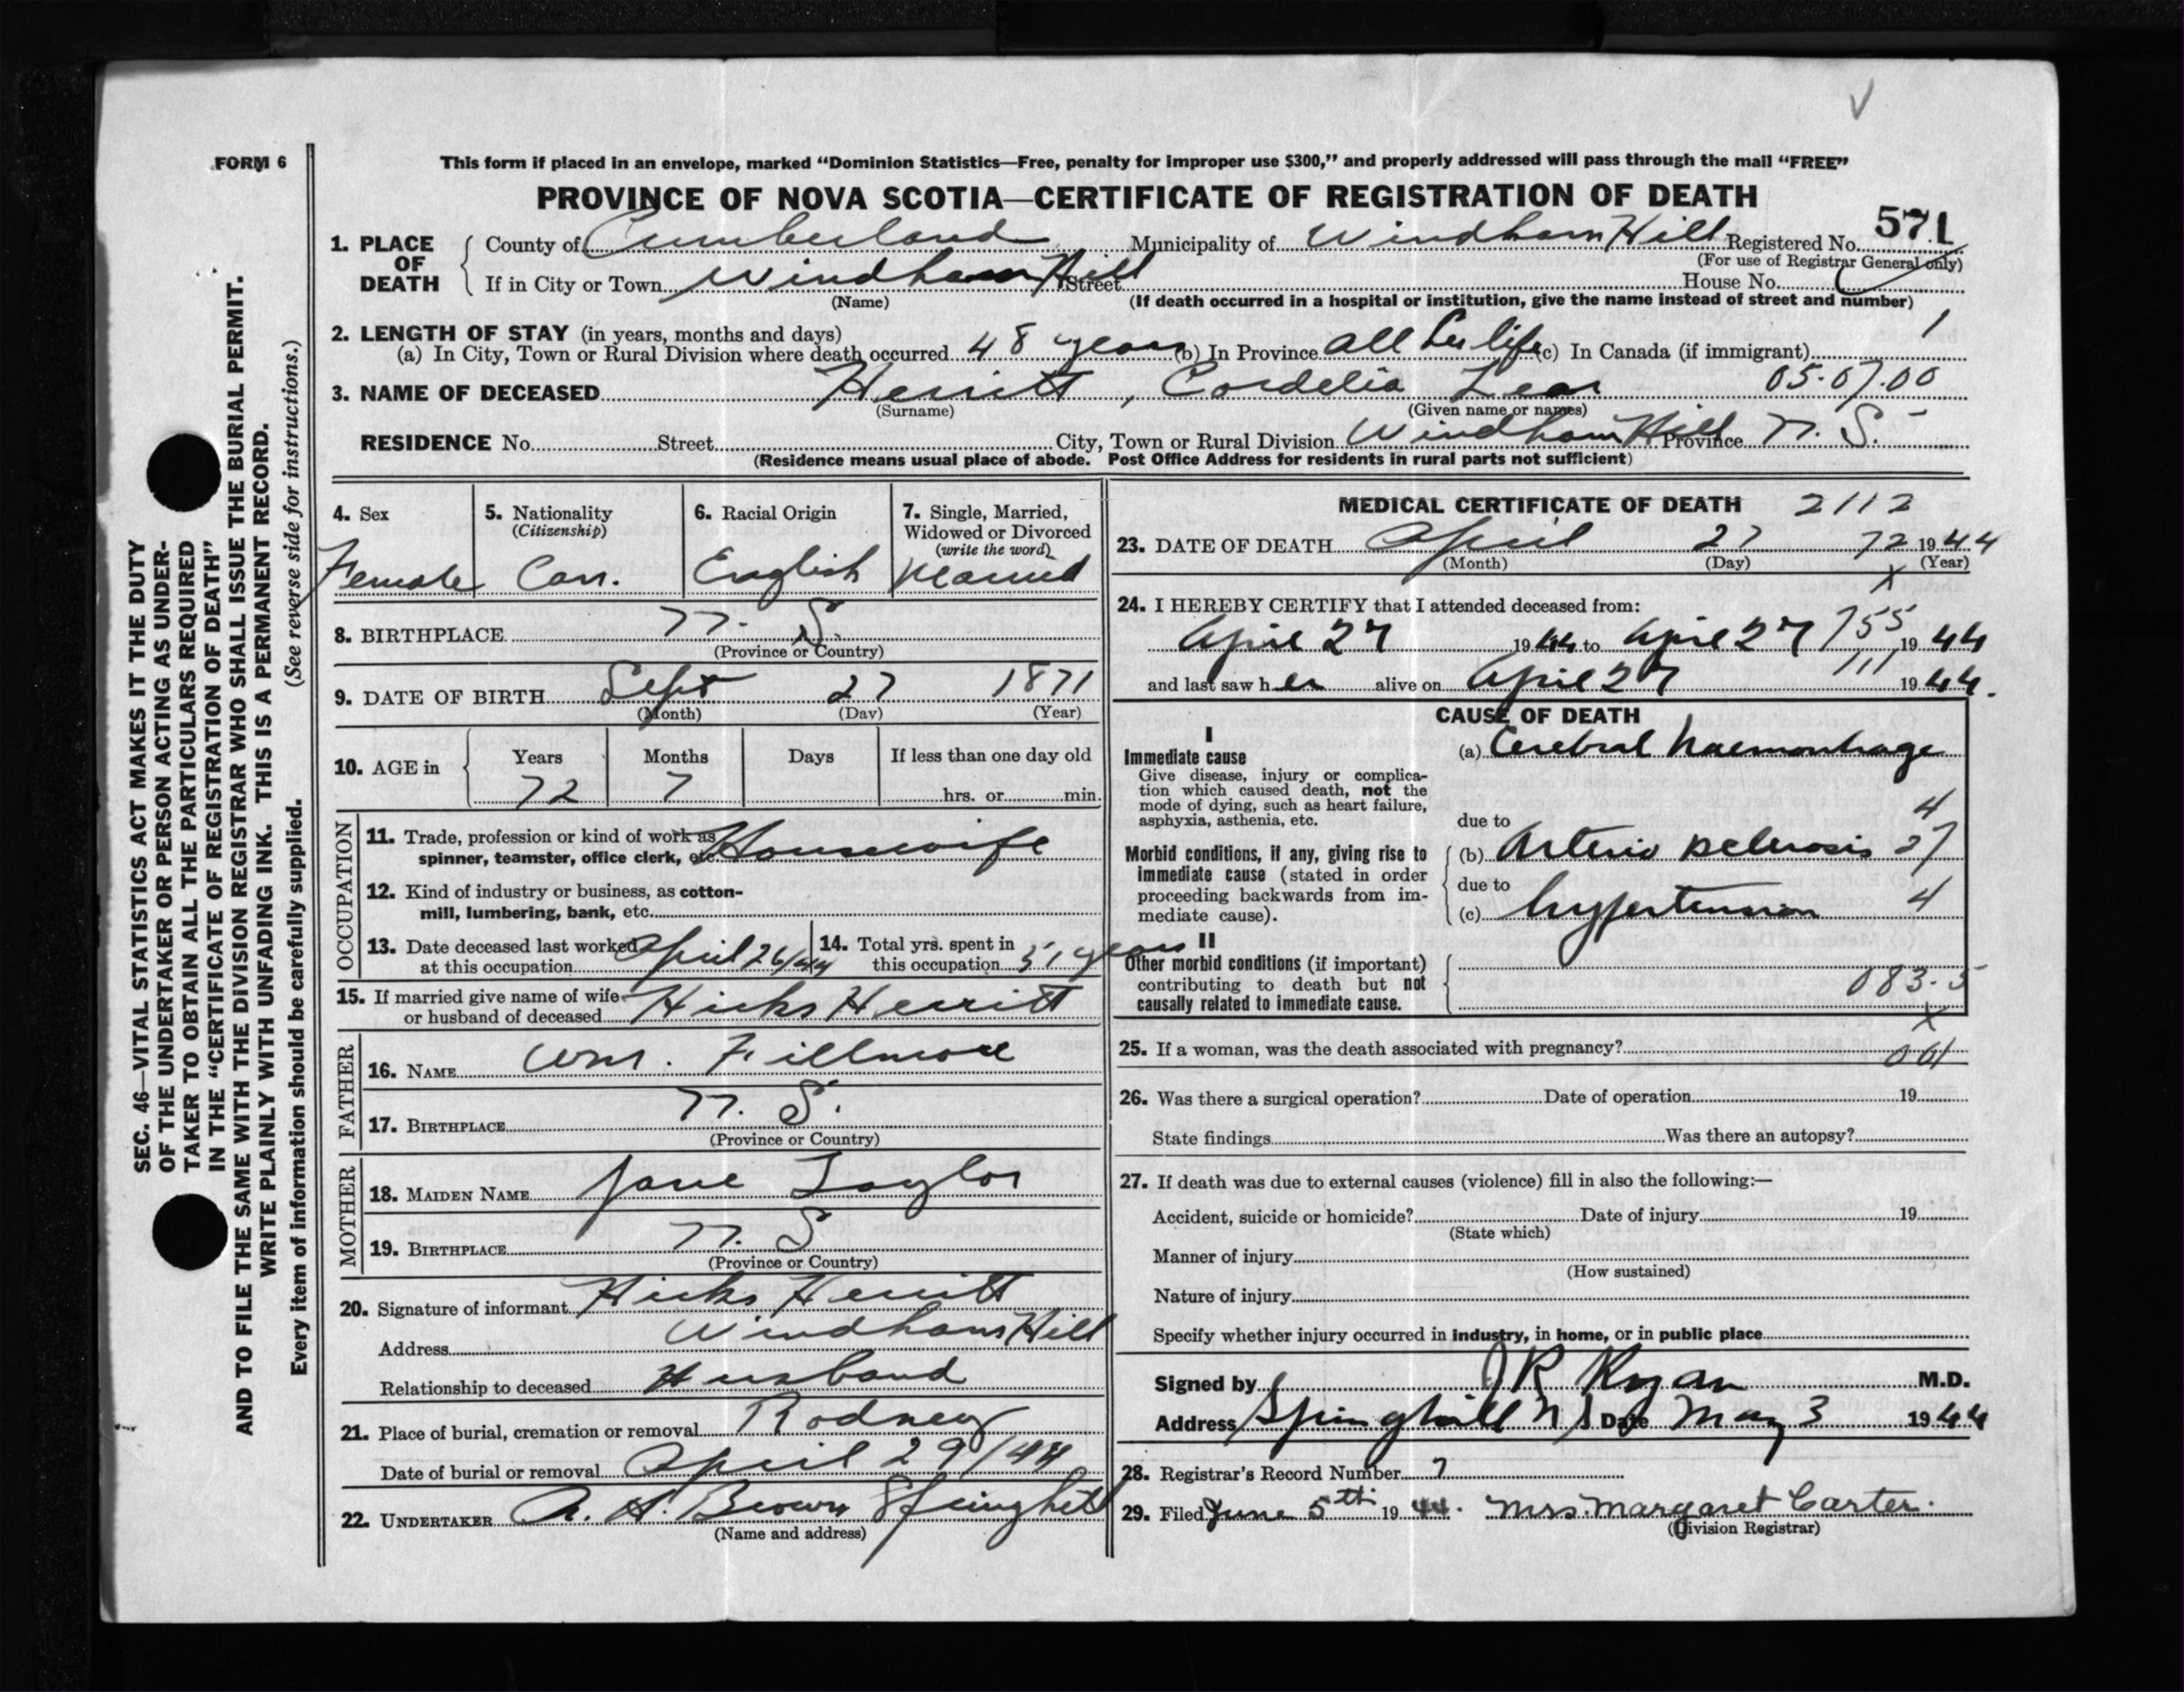 V
FORM 6
This form if placed in an envelope, marked “Dominion Statistics—Free, penalty for improper use $300,” and properly addressed will pass through the mail “FREE”
PROVINCE OF NOVA SCOTIA—CERTIFICATE OF REGISTRATION OF DEATH
571
1. PLACE OF DEATH { County of Cumberland Municipality of Windham Hill Registered No.
(For use of Registrar General only)
If in City or Town Windham Hill Street House No.
(Name) (If death occurred in a hospital or institution, give the name instead of street and number)
2. LENGTH OF STAY (in years, months and days) 1
(a) In City, Town or Rural Division where death occurred 48 years (b) In Province all her life (c) In Canada (if immigrant)
3. NAME OF DECEASED Herritt, Cordelia 05.07.00
(Surname) (Given name or names)
RESIDENCE No. Street City, Town or Rural Division Windham Hill Province N. S.
(Residence means usual place of abode. Post Office Address for residents in rural parts not sufficient)
4. Sex
Female
5. Nationality
(Citizenship)
Can.
6. Racial Origin
English
7. Single, Married,
Widowed or Divorced
(write the word)
Married
8. BIRTHPLACE N. S.
(Province or Country)
9. DATE OF BIRTH Sept 27 1871
(Month) (Day) (Year)
10. AGE in { Years Months Days If less than one day old
72 7 hrs. or min.
OCCUPATION
11. Trade, profession or kind of work as
spinner, teamster, office clerk, etc. Housewife
12. Kind of industry or business, as cotton-
mill, lumbering, bank, etc.
13. Date deceased last worked
at this occupation April 26/44
14. Total yrs. spent in
this occupation 51 years
15. If married give name of wife
or husband of deceased Hicks Herritt
FATHER
16. NAME Wm. Fillmore
17. BIRTHPLACE N. S.
(Province or Country)
MOTHER
18. MAIDEN NAME Jane Taylor
19. BIRTHPLACE N. S.
(Province or Country)
20. Signature of informant Hicks Herritt
Address Windham Hill
Relationship to deceased Husband
21. Place of burial, cremation or removal Rodney
Date of burial or removal April 29/44
22. UNDERTAKER A. H. Brown Springhill
(Name and address)
MEDICAL CERTIFICATE OF DEATH 2112
23. DATE OF DEATH April 27 72 1944
(Month) (Day) (Year)
X
24. I HEREBY CERTIFY that I attended deceased from:
April 27 1944 to April 27 755 1944
111
and last saw her alive on April 27 1944.
CAUSE OF DEATH
I
Immediate cause (a) Cerebral haemorrhage
Give disease, injury or complica-
tion which caused death, not the
mode of dying, such as heart failure,
asphyxia, asthenia, etc.
4
due to
Morbid conditions, if any, giving rise to
immediate cause (stated in order
proceeding backwards from im-
mediate cause).
(b) Arterio sclerosis 27
due to
(c) hypertension 4
II
Other morbid conditions (if important)
contributing to death but not
causally related to immediate cause.
083.5
X
25. If a woman, was the death associated with pregnancy?
26. Was there a surgical operation? Date of operation 19
State findings Was there an autopsy?
27. If death was due to external causes (violence) fill in also the following:—
Accident, suicide or homicide? Date of injury 19
(State which)
Manner of injury
(How sustained)
Nature of injury
Specify whether injury occurred in industry, in home, or in public place
Signed by J R Ryan M.D.
Address Springhill N S Date May 3 1944
28. Registrar's Record Number 7
29. Filed June 5th 1944. Mrs. Margaret Carter.
(Division Registrar)
SEC. 46—VITAL STATISTICS ACT MAKES IT THE DUTY
OF THE UNDERTAKER OR PERSON ACTING AS UNDER-
TAKER TO OBTAIN ALL THE PARTICULARS REQUIRED
IN THE “CERTIFICATE OF REGISTRATION OF DEATH”
AND TO FILE THE SAME WITH THE DIVISION REGISTRAR WHO SHALL ISSUE THE BURIAL PERMIT.
WRITE PLAINLY WITH UNFADING INK. THIS IS A PERMANENT RECORD.
Every item of information should be carefully supplied. (See reverse side for instructions.)